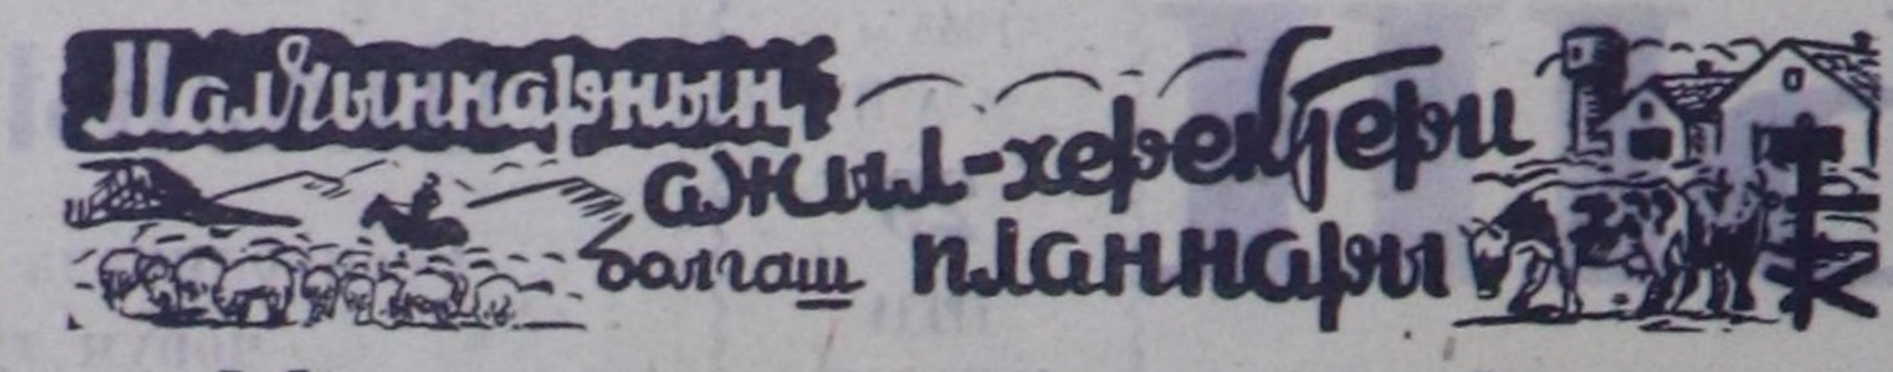 Малчыннарның
ажил-херектери
болгаш планнары